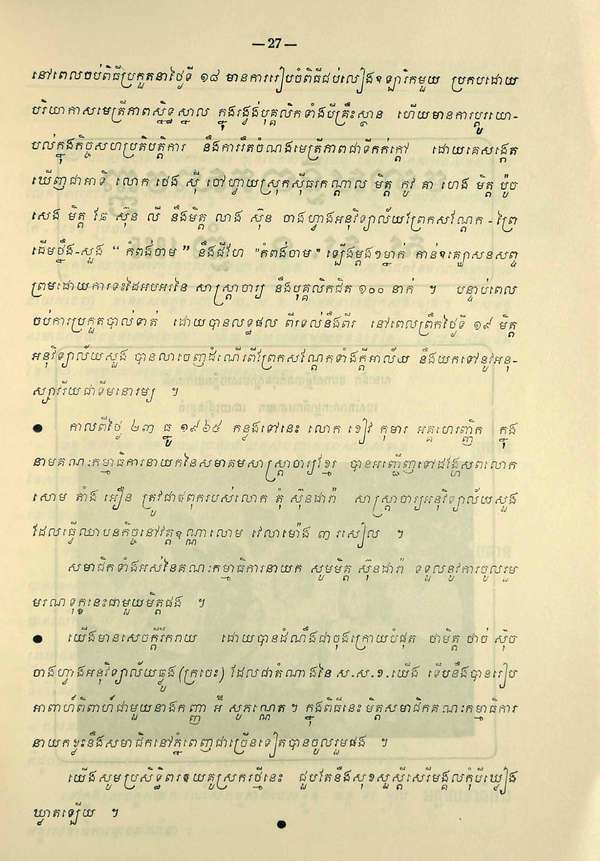 — 27 —
នៅពេលចប់ពិធីប្រកួតនាថ្ងៃទី ១៨ មានការរៀបចំពិធីជប់លៀងឧឡារិកមួយ ប្រកបដោយ
បរិយាកាសមេត្រីភាពស្និទ្ធស្នាល ក្នុងរង្វង់បុគ្គលិកទាំងបីគ្រឹះស្ថាន ហើយមានការប្ដូរយោ-
បល់ក្នុងកិច្ចសហប្រតិបត្តិការ នឹងការរឹតចំណងមេត្រីភាពជាទីកក់ក្ដៅ ដោយគេសង្កេត
ឃើញជាអាទិ លោក ថេង ស៊ី ចៅហ្វាយស្រុកស៊ីធរកណ្ដាល មិត្ត កូវ គា ហេង មិត្ត ប៉ូច
សេង មិត្ត ឆែ ស៊ុន លី នឹងមិត្ត លាង ស៊ុន ចាងហ្វាងអនុវិទ្យាល័យព្រែកសណ្ដែក - ព្រៃ
ដើមថ្នឹង-សួង “ កំពង់ចាម ” នឹងជីហែ "កំពង់ចាម" ឡើងម្ដងៗម្នាក់ កាន់ឧគ្ឃោសនសព្ទ
ព្រមដោយការទះដៃអបអរនៃ សាស្ត្រាចារ្យ នឹងបុគ្គលិកជិត ១០០ នាក់ ។ បន្ទាប់ពេល
ចប់ការប្រកួតបាល់ទាត់ ដោយបានលទ្ធផល ពីរទល់នឹងពីរ នៅពេលព្រឹកថ្ងៃទី ១៩ មិត្ត
អនុវិទ្យាល័យសួង បានលាចេញដំណើរពីព្រែកសណ្ដែកទាំងក្ដីអាល័យ នឹងយកទៅនូវអនុ-
ស្សាវរីយជាទីមនោរម្យ ។
● កាលពីថ្ងៃ ២៣ ធ្នូ ១៩៦៥ កន្លងទៅនេះ លោក ខៀវ កុមារ អគ្គហេរញ្ញិក ក្នុង
នាមគណៈកម្មាធិការនាយកនៃសមាគមសាស្ត្រាចារ្យខ្មែរ បានអញ្ជើញទៅដង្ហែសពលោក
សោម តាំង អឿន ត្រូវជាឪពុករបស់លោក គុំ ស៊ុនដារ៉ា សាស្ត្រាចារ្យអនុវិទ្យាល័យសួង
ដែលធ្វើឈាបនកិច្ចនៅវត្តឧណ្ណាលោម វេលាម៉ោង ៣ រសៀល ។
សមាជិកទាំងអស់នៃគណៈកម្មាធិការនាយក សូមមិត្ត ស៊ុនដារ៉ា ទទួលនូវការចូលរួម
មរណទុក្ខនេះជាមួយមិត្តផង ។
● យើងមានសេចក្ដីរីករាយ ដោយបានដំណឹងជាចុងក្រោយបំផុត ថាមិត្ត ថាច់ ស៊ុច
ចាងហ្វាងអនុវិទ្យាល័យឆ្លូង (ក្រចេះ) ដែលជាតំណាងនៃ ស.ស.ខ.យើង ទើបនឹងបានរៀប
អាពាហ៍ពិពាហ៍ជាមួយនាងកញ្ញា អ៊ី សុកណ្ណេត ។ ក្នុងពិធីនេះ មិត្តសមាជិកគណៈកម្មាធិការ
នាយកខ្លះនឹងសមាជិកនៅភ្នំពេញជាច្រើនទៀតបានចូលរួមផង ។
យើងសូមប្រសិទ្ធិពរឲយគូស្រករថ្មីនេះ ជួបតែនឹងសុខសួស្ដីសេរីមង្គលកុំបីឃ្លៀង
ឃ្លាតឡើយ ។